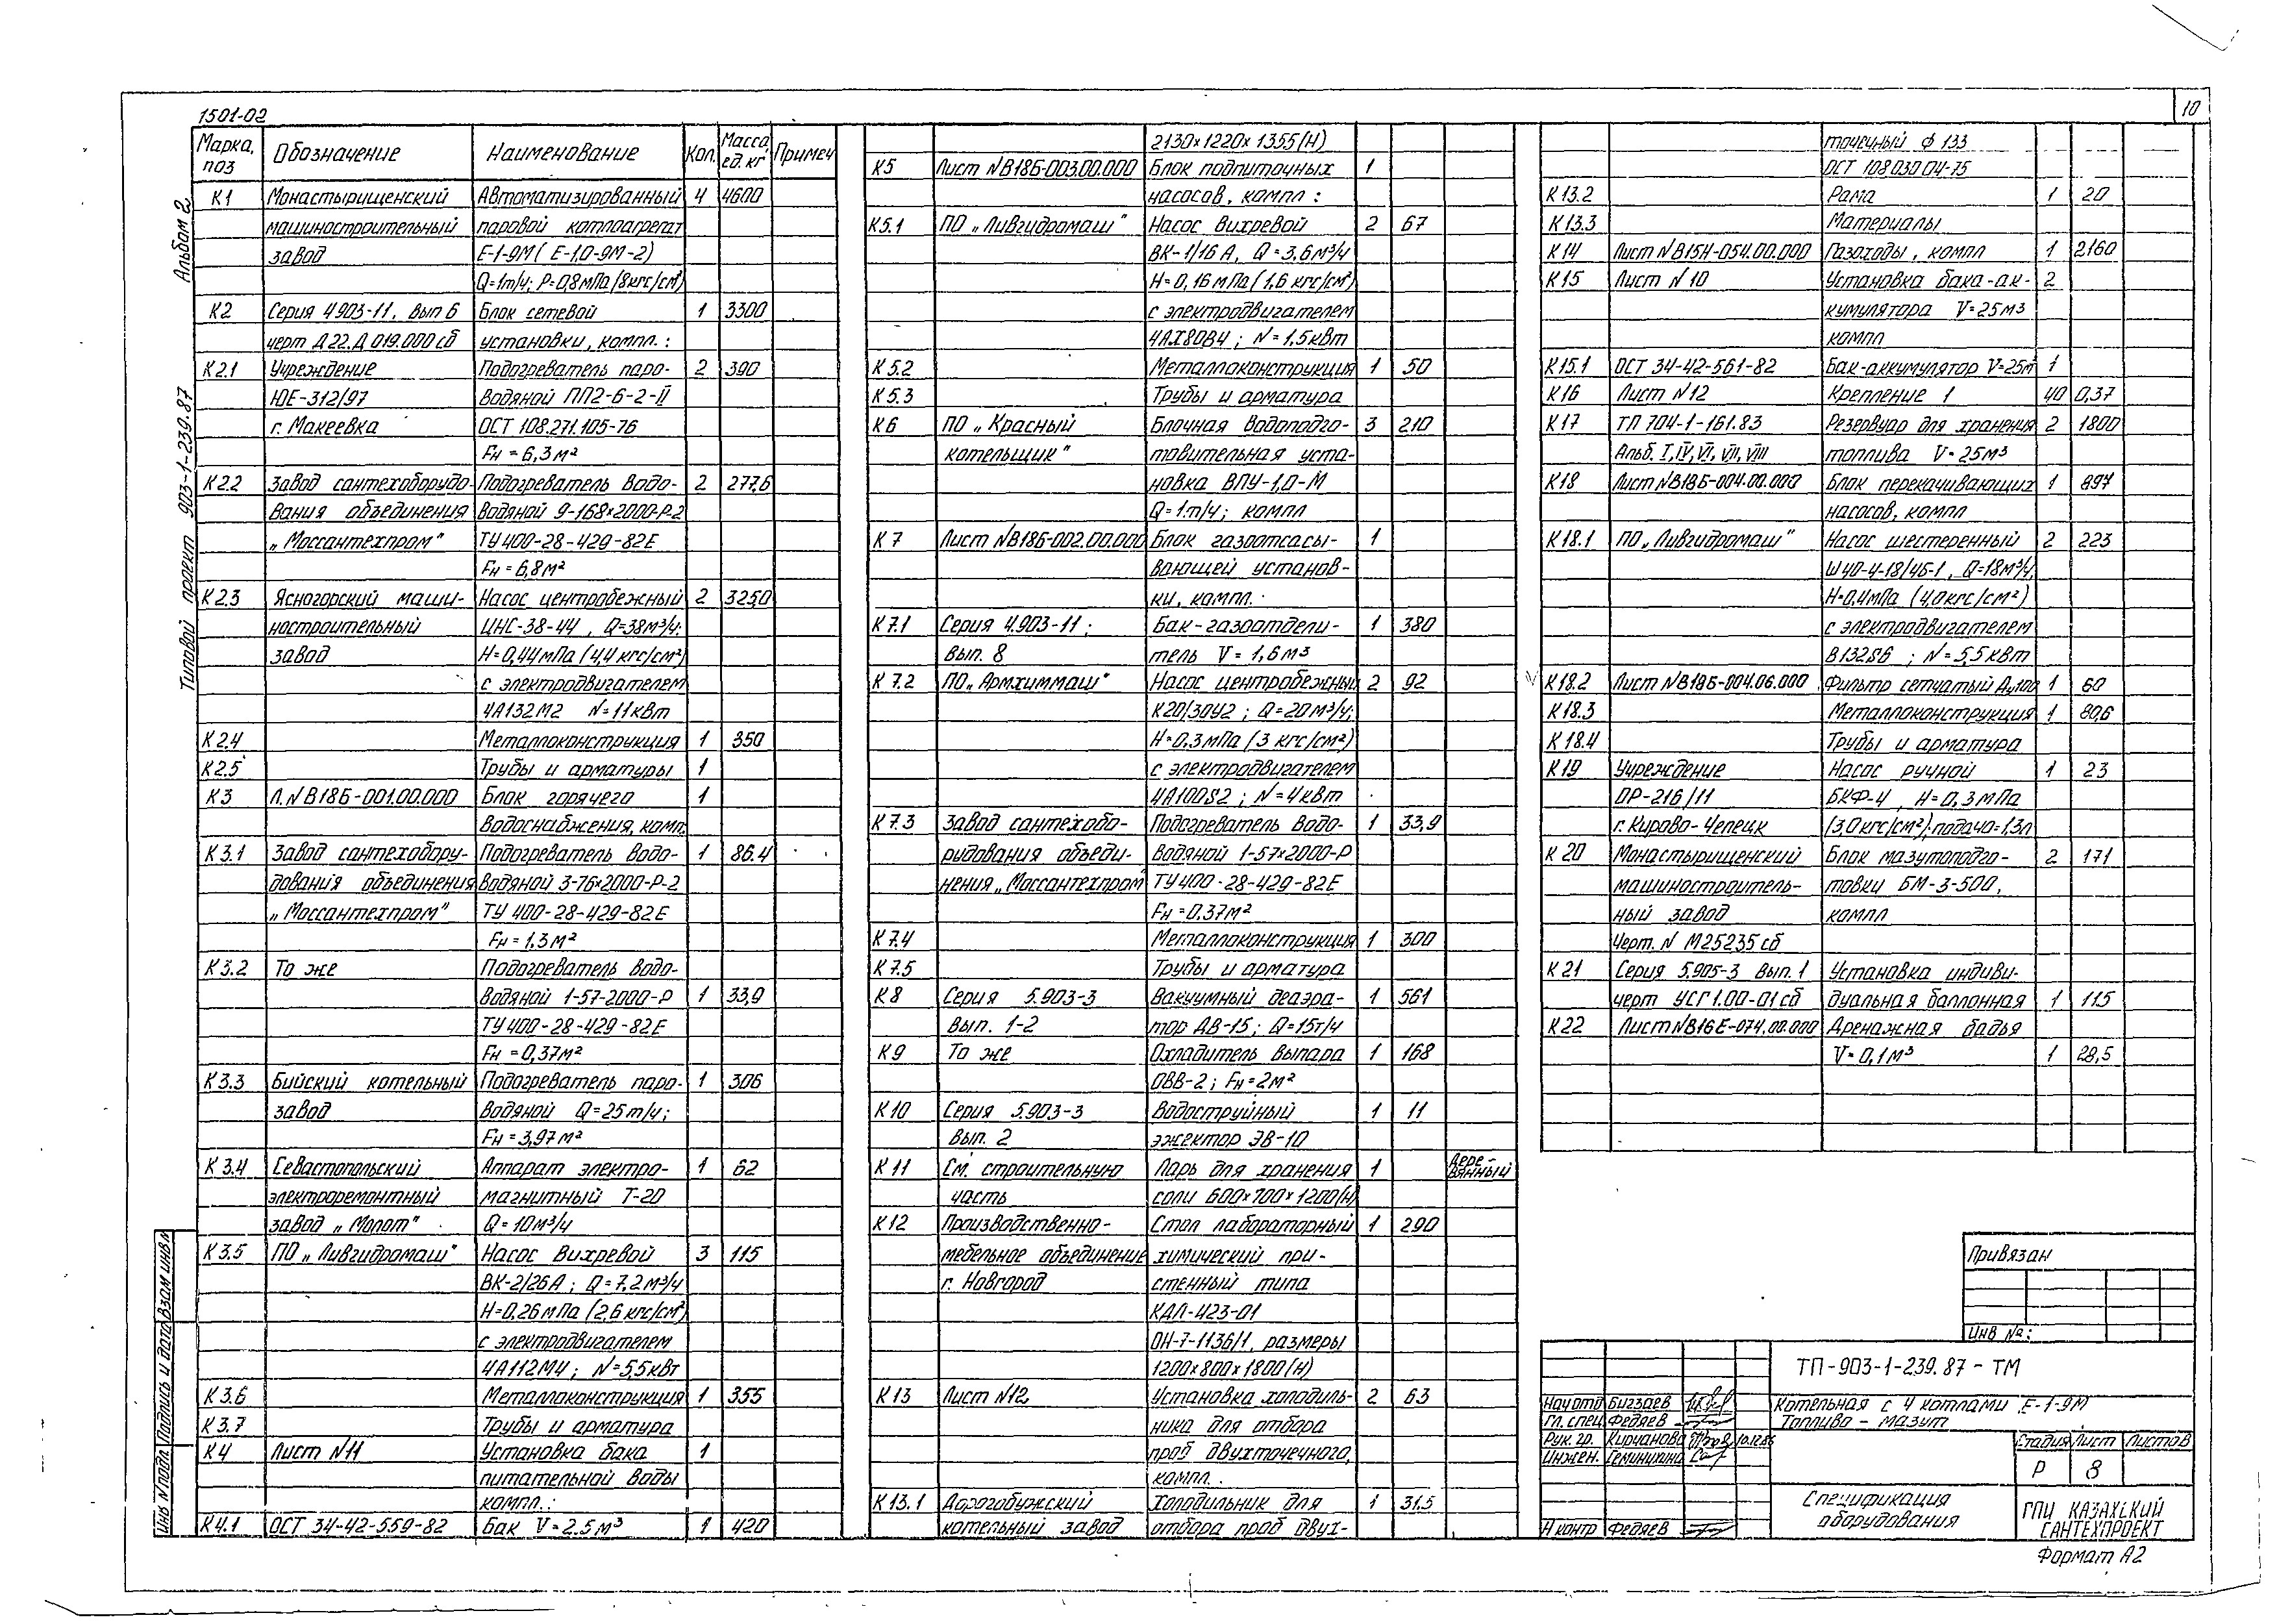 10
1501-02
Альбом 2
Типовой проект 903-1-239.87
Марка, поз Обозначение Наименование Кол. Масса ед. кг Примеч
К1 Монастырищенский Автоматизированный 4 4600
машиностроительный паровой котлоагрегат
завод Е-1-9М (Е-1,0-9М-2)
Q=1т/ч; Р=0,8мПа/8кгс/см²)
К2 Серия 4.903-11, вып 6 Блок сетевой 1 3300
черт Д22.Д019.000сб установки, компл.:
К2.1 Учреждение Подогреватель паро- 2 390
ЮЕ-312/97 водяной ПП2-6-2-II
г. Макеевка ОСТ 108.271.105-76
Fн = 6,3м²
К2.2 Завод сантехоборудо- Подогреватель водо- 2 277,6
вания объединения водяной 9-168×2000-Р-2
„Моссантехпром" ТУ400-28-429-82Е
Fн = 6,8м²
К2.3 Ясногорский маши- Насос центробежный 2 325,0
ностроительный ЦНС-38-44, Q=38м³/ч;
завод Н=0,44мПа (4,4кгс/см²)
с электродвигателем
4А132М2 N=11кВт
К2.4 Металлоконструкция 1 350
К2.5 Трубы и арматуры 1
К3 Л.N В18Б-001.00.000 Блок горячего 1
водоснабжения, комп.
К3.1 Завод сантехобору- Подогреватель водо- 1 86.4
дования объединения водяной 3-76×2000-Р-2
„Моссантехпром" ТУ 400-28-429-82Е
Fн = 1,3м²
К3.2 То же Подогреватель водо-
водяной 1-57-2000-Р 1 33,9
ТУ400-28-429-82Е
Fн = 0,37м²
К3.3 Бийский котельный Подогреватель паро- 1 306
завод водяной Q=25т/ч;
Fн = 3,97м²
К3.4 Севастопольский Аппарат электро- 1 62
электроремонтный магнитный Т-20
завод „Молот" Q=10м³/ч
К3.5 ПО „Ливгидромаш" Насос вихревой 3 115
ВК-2/26А; Q=7,2м³/ч
Н=0,26мПа (2,6кгс/см²)
с электродвигателем
4А112М4; N=5,5кВт
К3.6 Металлоконструкция 1 355
К3.7 Трубы и арматура
К4 Лист N11 Установка бака 1
питательной воды
компл.:
К4.1 ОСТ 34-42-559-82 Бак V=2.5м³ 1 420
2130×1220×1355(Н)
К5 Лист NВ18Б-003.00.000 Блок подпиточных 1
насосов, компл:
К5.1 ПО „Ливгидромаш" Насос вихревой 2 67
ВК-1/16А, Q=3,6м³/ч
Н=0,16мПа (1,6кгс/см²)
с электродвигателем
4АХ80В4; N=1,5кВт
К5.2 Металлоконструкция 1 50
К5.3 Трубы и арматура
К6 ПО „Красный Блочная водоподго- 3 210
котельщик" товительная уста-
новка ВПУ-1,0-М
Q=1т/ч; компл
К7 Лист NВ18Б-002.00.000 Блок газоотсасы- 1
вающей установ-
ки, компл.
К7.1 Серия 4.903-11; Бак-газоотдели- 1 380
вып. 8 тель V=1,6м³
К7.2 ПО „Армхиммаш" Насос центробежный 2 92
К20/30У2; Q=20м³/ч;
Н=0,3мПа (3 кгс/см²)
с электродвигателем
4А100S2; N=4кВт
К7.3 Завод сантехобо- Подогреватель водо- 1 33,9
рудования объеди- водяной 1-57×2000-Р
нения „Моссантехпром" ТУ400-28-429-82Е
Fн = 0,37м²
К7.4 Металлоконструкция 1 300
К7.5 Трубы и арматура
К8 Серия 5.903-3 Вакуумный деаэра- 1 561
вып. 1-2 тор ДВ-15; Q=15т/ч
К9 То же Охладитель выпара 1 168
ОВВ-2; Fн=2м²
К10 Серия 5.903-3 Водоструйный 1 11
вып. 2 эжектор ЭВ-10
К11 См. строительную Ларь для хранения 1 Дере-вянный
часть соли 600×700×1200(Н)
К12 Производственно- Стол лабораторный 1 290
мебельное объединение химический при-
г. Новгород стенный типа
КДЛ-423-01
ОН-7-1136/1, размеры
1200×800×1800(Н)
К13 Лист N12 Установка холодиль- 2 63
ника для отбора
проб двухточечного,
компл.
К13.1 Дорогобужский Холодильник для 1 31,5
котельный завод отбора проб двух-
точечный ф 133
ОСТ 108.030.04-75
К13.2 Рама 1 20
К13.3 Материалы
К14 Лист NВ15Н-054.00.000 Газоходы, компл 1 2160
К15 Лист N10 Установка бака-ак- 2
кумулятора V=25м³
компл
К15.1 ОСТ 34-42-561-82 Бак-аккумулятор V=25м³ 1
К16 Лист N12 Крепление 1 40 0,37
К17 ТП 704-1-161.83 Резервуар для хранения 2 1800
Альб. I, IV, VI, VII, VIII топлива V=25м³
К18 Лист NВ18Б-004.00.000 Блок перекачивающих 1 897
насосов, компл
К18.1 ПО „Ливгидромаш" Насос шестеренный 2 223
Ш40-4-18/4Б-1, Q=18м³/ч,
Н=0,4мПа (4,0кгс/см²)
с электродвигателем
В132S6; N=5,5кВт
К18.2 Лист NВ18Б-004.06.000 Фильтр сетчатый Ду100 1 60
К18.3 Металлоконструкция 1 80,6
К18.4 Трубы и арматура
К19 Учреждение Насос ручной 1 23
ОР-216/11 БКФ-4, Н=0,3мПа
г. Кирово-Чепецк (3,0кгс/см²); подача=1,3л
К20 Монастырищенский Блок мазутоподго- 2 171
машиностроитель- товки БМ-3-500,
ный завод компл
Черт. N М25235сб
К21 Серия 5.905-3 вып. 1 Установка индиви-
черт УСГ1.00-01сб дуальная баллонная 1 115
К22 Лист NВ16Е-074.00.000 Дренажная бадья
V=0,1м³ 1 28,5
Привязан
Инв №:
ТП-903-1-239.87-ТМ
Нач отд Бигзаев
Гл. спец Федяев
Рук. гр. Кирчанова 10.12.86
Инжен.
Н контр Федяев
Котельная с 4 котлами Е-1-9М
Топливо - мазут
Стадия Лист Листов
Р 8
Спецификация
оборудования
ГПИ КАЗАХСКИЙ
САНТЕХПРОЕКТ
Формат А2
Инв N подл Подпись и дата Взам инв N